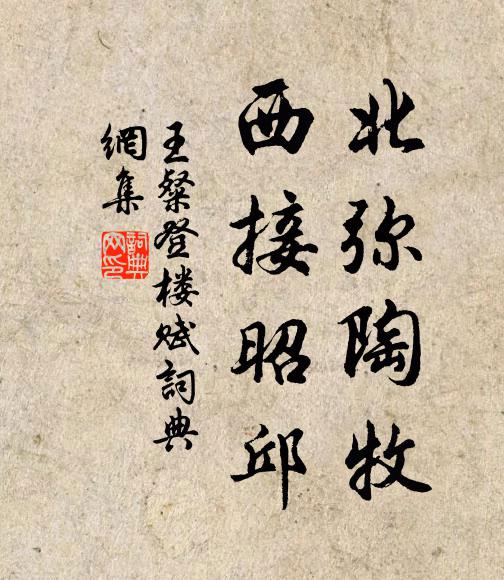 北弥陶牧
西接昭邱
王粲登楼赋詞典
網集
詞典
网印